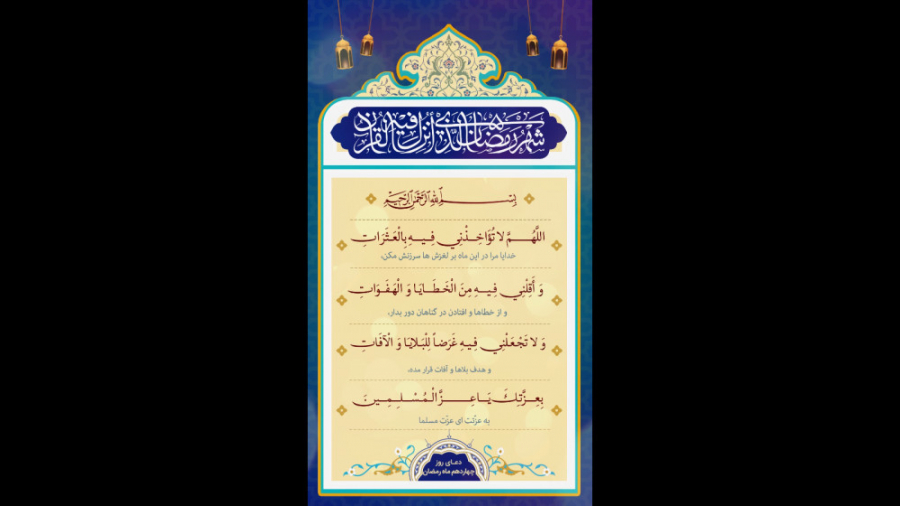 شَهْرُ رَمَضَانَ الَّذِي أُنْزِلَ فِيهِ الْقُرْآنُ
بِسْمِ اللَّهِ الرَّحْمَٰنِ الرَّحِيمِ
اللَّهُمَّ لا تُؤَاخِذْنِي فِيهِ بِالْعَثَرَاتِ
خدایا مرا در این ماه بر لغزش ها سرزنش مکن،
وَ أَقِلْنِي فِيهِ مِنَ الْخَطَايَا وَ الْهَفَوَاتِ
و از خطاها و افتادن در گناهان دور بدار،
وَ لا تَجْعَلْنِي فِيهِ غَرَضاً لِلْبَلايَا وَ الْآفَاتِ
و هدف بلاها و آفات قرار مده،
بِعِزَّتِكَ يَا عِزَّ الْمُسْلِمِينَ
به عزّتت ای عزّت مسلما
دعای روز
چهاردهم ماه رمضان